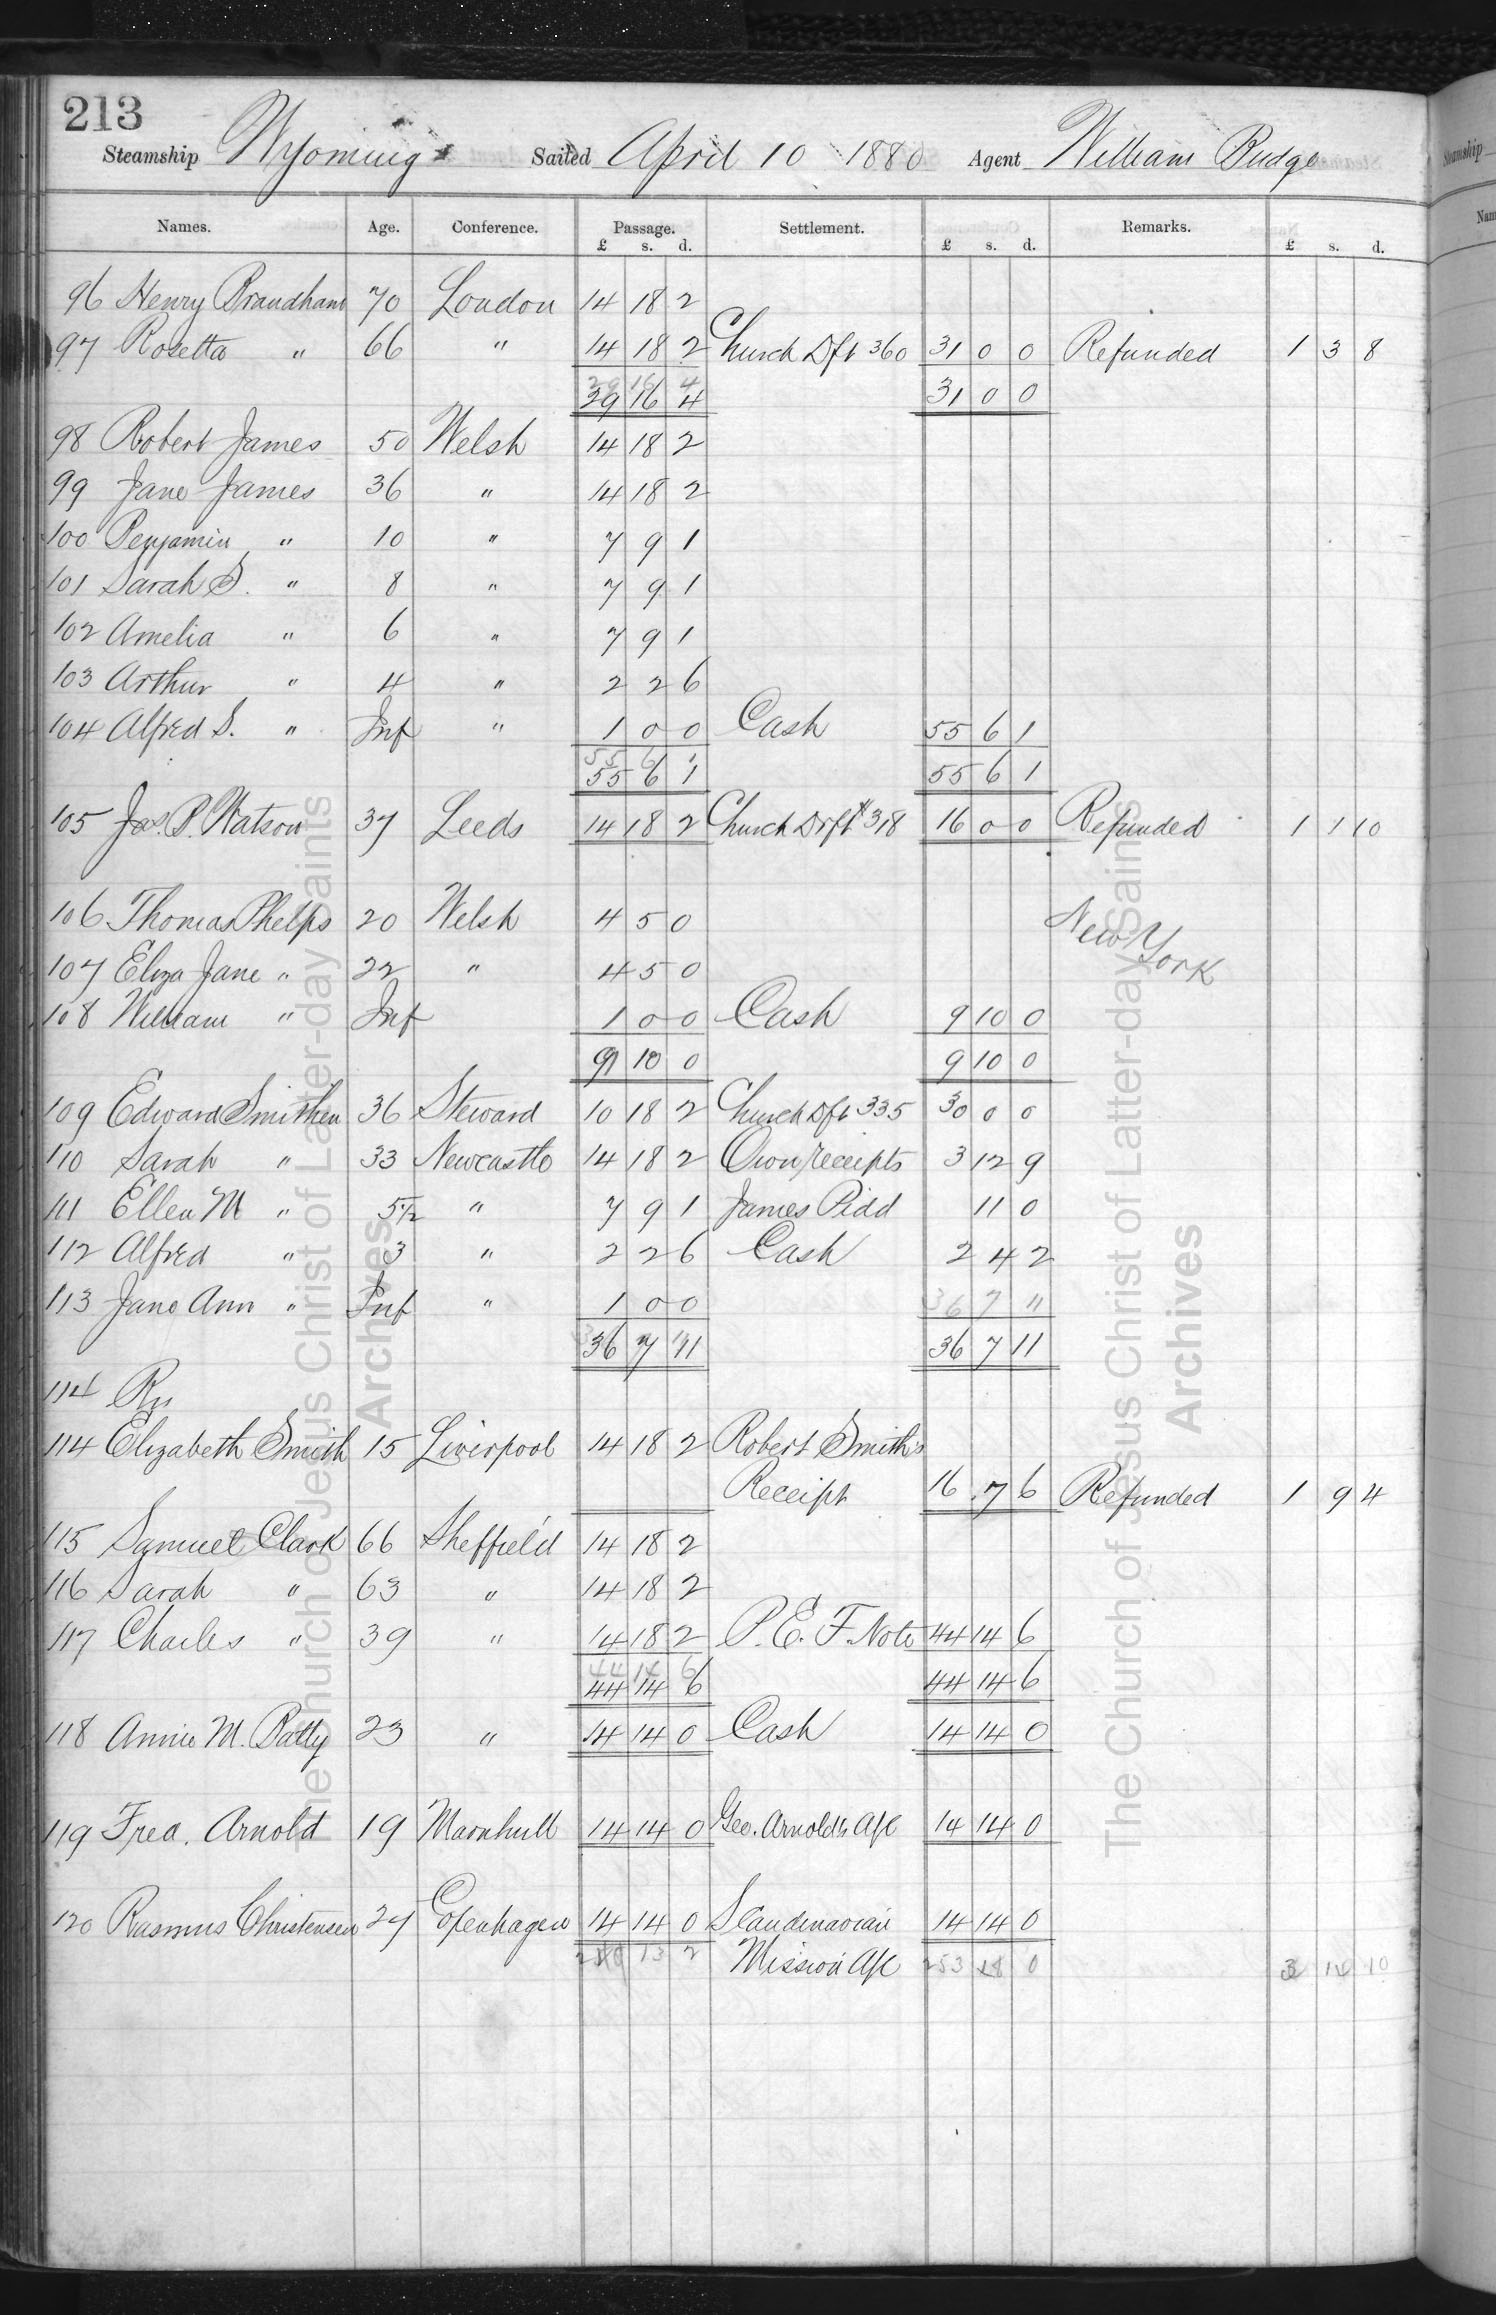 213
Steamship Wyoming Sailed April 10 1880 Agent William Budge
Names. Age. Conference. Passage. Settlement. Remarks.
£ s. d. £ s. d. £ s. d.
96 Henry Brandham 70 London 14 18 2
97 Rosetta " 66 " 14 18 2 Church Dft 360 31 0 0 Refunded 1 3 8
29 16 4 31 0 0
98 Robert James 50 Welsh 14 18 2
99 Jane James 36 " 14 18 2
100 Benjamin " 10 " 7 9 1
101 Sarah S. " 8 " 7 9 1
102 Amelia " 6 " 7 9 1
103 Arthur " 4 " 2 2 6
104 Alfred S. " Inf " 1 0 0 Cash 55 6 1
55 6 1
55 6 1 55 6 1
105 Jas. P. Watson 37 Leeds 14 18 2 Church Drft 318 16 0 0 Refunded 1 1 10
106 Thomas Phelps 20 Welsh 4 5 0
New York
107 Eliza Jane " 22 " 4 5 0
108 William " Inf 1 0 0 Cash 9 10 0
9 10 0 9 10 0
109 Edward Smithen 36 Steward 10 18 2 Church Dft 335 30 0 0
110 Sarah " 33 Newcastle 14 18 2 Own receipts 3 12 9
111 Ellen M " 5 1/2 " 7 9 1 James Pidd 11 0
112 Alfred " 3 " 2 2 6 Cash 2 4 2
113 Jane Ann " Inf " 1 0 0 36 7 11
36 7 11 36 7 11
114 Ru
114 Elizabeth Smith 15 Liverpool 14 18 2 Robert Smith's
Receipt 16 7 6 Refunded 1 9 4
115 Samuel Clark 66 Sheffield 14 18 2
116 Sarah " 63 " 14 18 2
117 Charles " 39 " 14 18 2 P. E. F. Note 44 14 6
44 14 6
44 14 6 44 14 6
118 Annie M. Batty 23 " 14 14 0 Cash 14 14 0
119 Fred. Arnold 19 Marnhull 14 14 0 Geo. Arnold's A/c 14 14 0
120 Rasmus Christensen 27 Copenhagen 14 14 0 Scandinavian 14 14 0
13 2 Mission A/c 253 18 0 3 14 10
The Church of Jesus Christ of Latter-day Saints
Archives
The Church of Jesus Christ of Latter-day Saints
Archives
Steamship